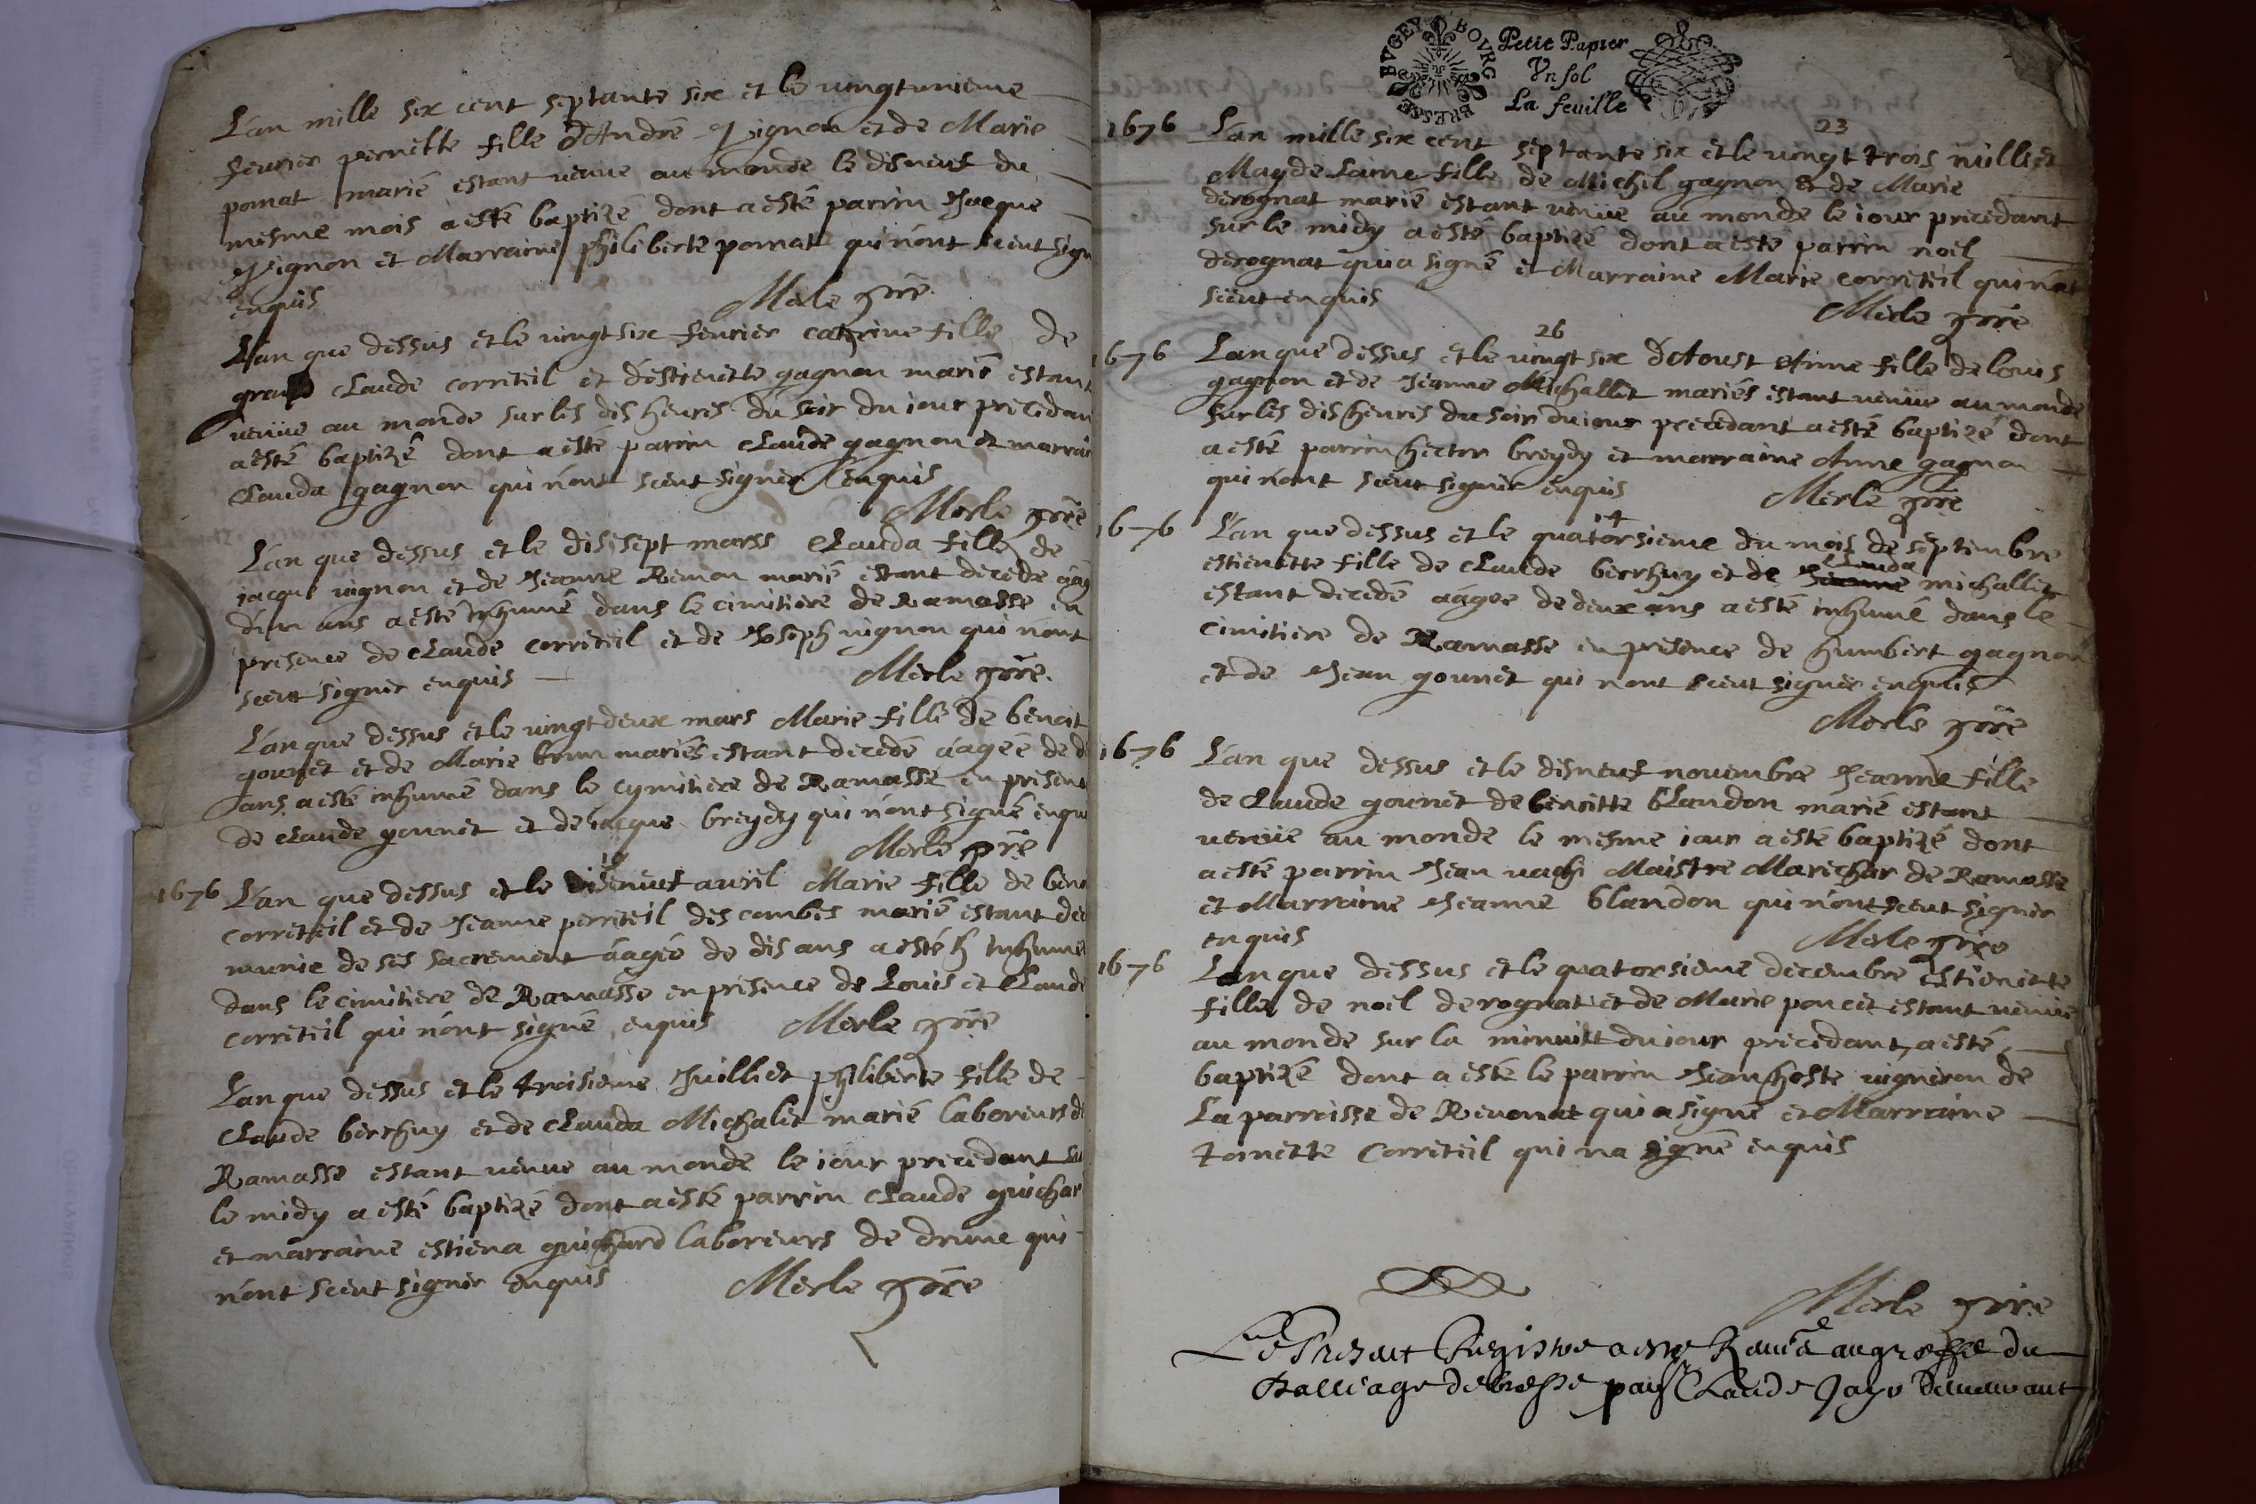 L'an mille six cent septante six et le vingtunieme
feurier pernette fille d'André Vignon et de Marie
pomat marié estant venue au monde le disneuf du
mesme mois a esté baptizé dont a esté parrin Jacque
Vignon et Marraine philiberte pomat qui n'ont sceut sign
enquis Merle pbre
L'an que dessus et le vingt six feurier catrine fille de
grand claude correteil et d'estienette gagnon marié estant
venüe au monde sur les dis heures du soir du iour precedan
a esté baptizé dont a esté parrin claude gagnon et marrai
clauda gagnon qui n'ont sceut signer enquis
Merle pbre
L'an que dessus et le disisept marss clauda fille de
iacque vignon et de Jeanne Remon marié estant decede aag
d'un ans a esté Inhumé dans le cimitiere de Ramasse en
presence de claude correteil et de Joseph vignon qui n'ont
sceut signer enquis Merle pbre.
L'an que dessus et le vingt deux mars Marie fille de benoit
gounet et de Marie brun mariés estant decedé aagée de d
ans a esté inhumé dans le cymitiere de Ramasse en present
de claude gounet et de iacque breydy qui n'ont signé enqu
Merle pbre
19
1676 L'an que dessus et le disneuf auril Marie fille de beno
correteil et de Jeanne perreteil des combes marié estant dec
munie de ses sacrement aagée de dis ans a esté h Inhumé
dans le cimitiere de Ramasse en presence de Louis et Claude
correteil qui n'ont signé enquis Merle pbre
L'an que dessus et le troisieme Juilliet philiberte fille de
claude berthuy et de clauda Michalet marié laboreurs de
Ramasse estant venue au monde le iour precedant su
le midy a esté baptizé dont a esté parrin claude guichar
et marraine estiena guichard laboreurs de drime qui
n'ont sceut signer enquis Merle pbre
BVGEY BOVRG BRESSE
Petit Papier
Vn sol
La feuille
23
1676 L'an mille six cent septante six et le vingt trois iuilliet
Magdelaine fille de Michel gagnon et de Marie
derognat marié estant venüe au monde le iour precedant
sur le midy a esté baptizé dont a esté parrin noel
derognat qui a signé et Marraine Marie correteil qui n'at
sceut enquis Merle pbre
26
1676 L'an que dessus et le vingt six d'Aoust Anne fille de louis
gagnon et de Jeanne Michallet mariés estant venüe au monde
sur les dis heures du soir du iour precedant a esté baptizé dont
a esté parrin hector breydy et marraine Anne gagnon
qui n'ont sceut signer enquis Merle pbre
14
1676 L'an que dessus et le quatorsieme du mois de septembre
clauda
estienette fille de claude berthuy et de Jeanne michallet
estant decedé aagée de deux ans a esté inhumé dans le
cimitiere de Ramasse en presence de humbert gagnon
et de Jean gounet qui n'ont sceut signer enquis
Merle pbre
1676 L'an que dessus et le disneuf nouembre Jeanne fille
de claude gounet de benoitte blandon marié estant
venüe au monde le mesme iour a esté baptizé dont
a esté parrin Jean vachi Maistre Marechar de Ramasse
et Marraine Jeanne blandon qui n'ont sceut signer
enquis Merle pbre
1676 L'an que dessus et le quatorsieme decembre estienette
fille de noel derognat et de Marie poncet estant venüe
au monde sur la minuitt du iour precedant, a esté
baptizé dont a esté le parrin Jean hoste vigneron de
La parroisse de Reuonat qui a signé et Marraine
toinette correteil qui na signé enquis
Merle pbre
Le Present Registre a esté Remis au greffe du
Balliage de bresse par Claude Jayr